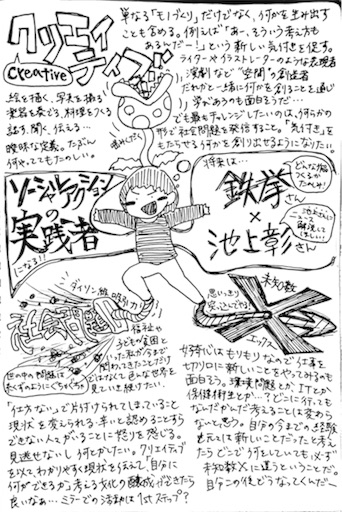 クリエイティブ
creative
単なる「モノづくり」だけでなく、何かを生み出す
ことも含める。例えば「あー、そういう考え方も
あるんだー!」という新しい気付きを促す。
ライターやイラストレーターのような表現者
演劇など"空間"の創造者
だれかと一緒に何かを創ることを通じ
学びあうのも面白そうだ…
でも最もチャレンジしたいのは、何らかの
形で社会問題を発信すること。"気付き"を
もたらせる何かを創り出せるようになりたい。
絵を描く、写真を撮る
楽器を奏でる、料理をつくる
話す、聞く、伝える…
曖昧な定義。たぶん
何やってもたのしい。
噛みくだく
ソーシャルアクション
の
実践者
になる!?
将来は…
どんな論
つくるか
たのしみ!
鉄拳さん
×
池上彰さん
池上さんに
ニュース
解説して
ほしい!
ダイソン級
吸引力
社会問題
世の中の問題は
あくずのようにぐちゃぐちゃ
福祉や
子どもの貧困と
いった私が今まで
関わってきたことだけ
ではなくて、あらゆる世界を
見ていき続けたい。
思いっきり
突っ込んでやる!
未知数
エックス
好奇心はもりもりなので仕事を
切り口に新しいことをやってみるのも
面白そう。環境問題とか、ITとか
保健衛生とか…?どこに行っても
なんだかんだ考えることは変わら
ないと思う。自分の今までの経験
だって新しいことだったと考え
たらどこでり何をしていても必ず
未知数Xに違うということだ。
自分この後どうなってくんだー
「仕方ない」で片づけられてしまっている
現状を変えられる・辛いと認めることすら
できない人がいることに怒りを感じる。
見逃せないし何とかしたい。クリエイティブ
を以て、わかりやすく現状を伝えし、「自分に
何ができるか」考える文化の醸成ができたら
良いなぁ…ミラーでの活動は1stステップ?